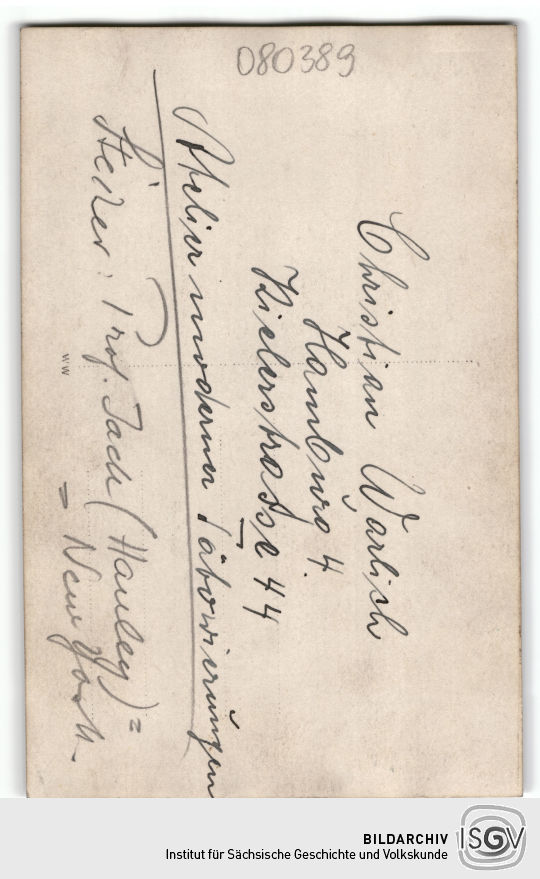 080389
Christian Warlich
Hamburg 4.
Kielerstrasse 44
Atelier moderner Tätowierungen
Steiner: Prof. Jack (Hauley) =
= New York.
WW
BILDARCHIV
Institut für Sächsische Geschichte und Volkskunde
ISGV